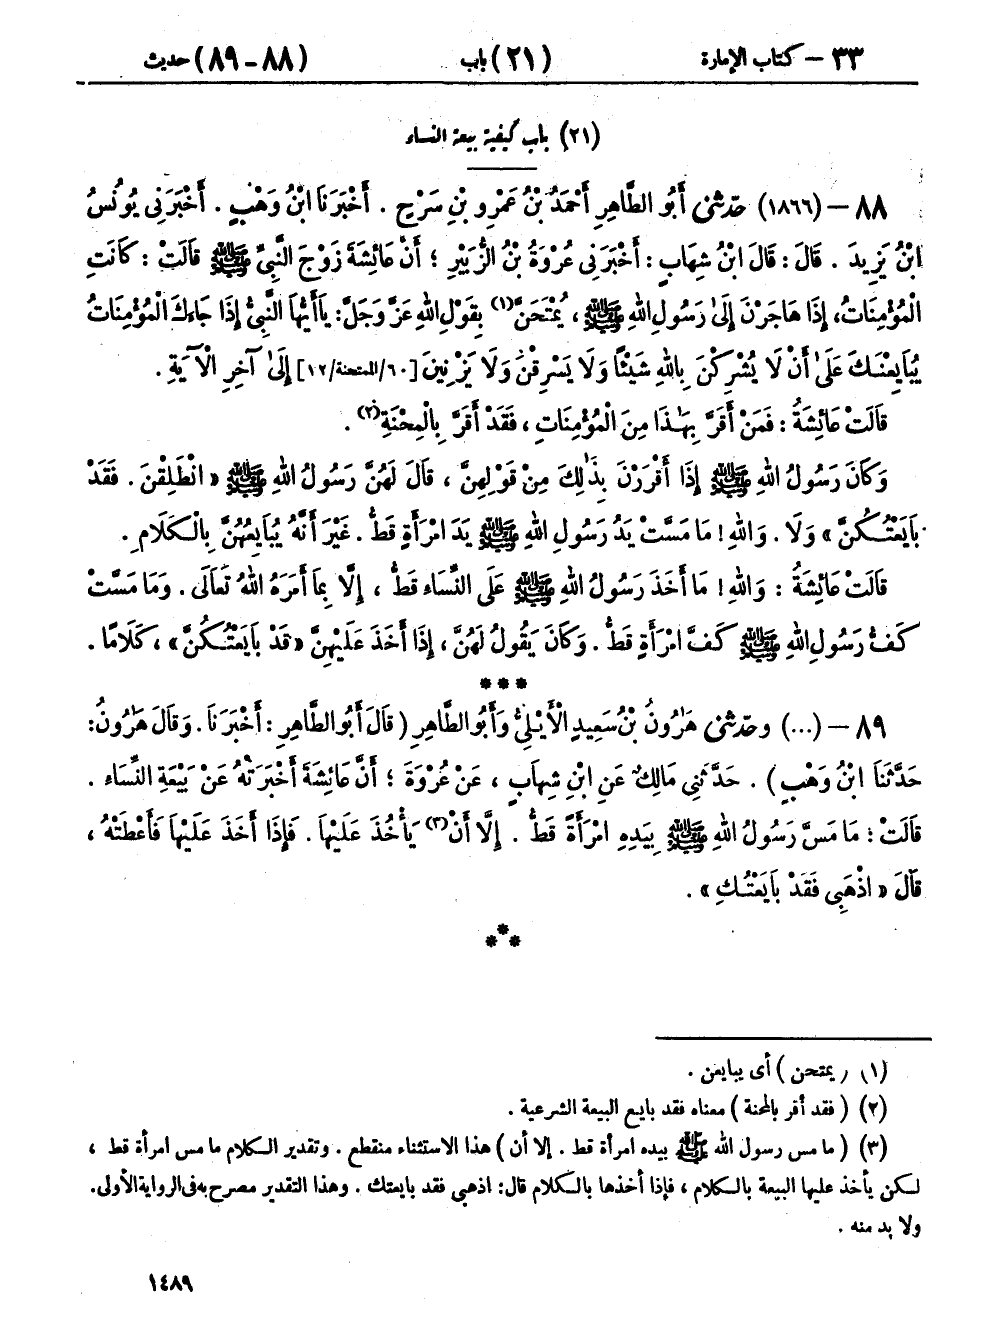 ٣٣ – كتاب الإمارة (٢١) باب (٨٨ – ٨٩) حديث
(٢١) باب كيفية بيعة النساء
٨٨ – (١٨٦٦) حَدَّثَنِي أَبُو الطَّاهِرِ أَحْمَدُ بْنُ عَمْرِو بْنِ سَرْحٍ . أَخْبَرَنَا ابْنُ وَهْبٍ . أَخْبَرَنِي يُونُسُ
ابْنُ يَزِيدَ . قَالَ : قَالَ ابْنُ شِهَابٍ : أَخْبَرَنِي عُرْوَةُ بْنُ الزُّبَيْرِ ؛ أَنَّ عَائِشَةَ زَوْجَ النَّبِيِّ ﷺ قَالَتْ : كَانَتِ
الْمُؤْمِنَاتُ ، إِذَا هَاجَرْنَ إِلَىٰ رَسُولِ اللهِ ﷺ ، يُمْتَحَنَّ(١) بِقَوْلِ اللهِ عَزَّ وَجَلَّ : يَاأَيُّهَا النَّبِيُّ إِذَا جَاءَكَ الْمُؤْمِنَاتُ
يُبَايِعْنَكَ عَلَىٰ أَنْ لَا يُشْرِكْنَ بِاللهِ شَيْئًا وَلَا يَسْرِقْنَ وَلَا يَزْنِينَ [٦٠/الممتحنة/١٢] إِلَىٰ آخِرِ الْآيَةِ .
قَالَتْ عَائِشَةُ : فَمَنْ أَقَرَّ بِهَٰذَا مِنَ الْمُؤْمِنَاتِ ، فَقَدْ أَقَرَّ بِالْمِحْنَةِ(٢) .
وَكَانَ رَسُولُ اللهِ ﷺ إِذَا أَقْرَرْنَ بِذَٰلِكَ مِنْ قَوْلِهِنَّ ، قَالَ لَهُنَّ رَسُولُ اللهِ ﷺ « انْطَلِقْنَ . فَقَدْ
بَايَعْتُكُنَّ » وَلَا . وَاللهِ ! مَا مَسَّتْ يَدُ رَسُولِ اللهِ ﷺ يَدَ امْرَأَةٍ قَطُّ . غَيْرَ أَنَّهُ يُبَايِعُهُنَّ بِالْكَلَامِ .
قَالَتْ عَائِشَةُ : وَاللهِ ! مَا أَخَذَ رَسُولُ اللهِ ﷺ عَلَى النِّسَاءِ قَطُّ ، إِلَّا بِمَا أَمَرَهُ اللهُ تَعَالَى . وَمَا مَسَّتْ
كَفُّ رَسُولِ اللهِ ﷺ كَفَّ امْرَأَةٍ قَطُّ . وَكَانَ يَقُولُ لَهُنَّ ، إِذَا أَخَذَ عَلَيْهِنَّ « قَدْ بَايَعْتُكُنَّ » ، كَلَامًا .
***
٨٩ – (...) وحَدَّثَنِي هَرُونُ بْنُ سَعِيدٍ الْأَيْلِيُّ وَأَبُو الطَّاهِرِ ( قَالَ أَبُو الطَّاهِرِ : أَخْبَرَنَا . وَقَالَ هَرُونُ :
حَدَّثَنَا ابْنُ وَهْبٍ ) . حَدَّثَنِي مَالِكٌ عَنِ ابْنِ شِهَابٍ ، عَنْ عُرْوَةَ ؛ أَنَّ عَائِشَةَ أَخْبَرَتْهُ عَنْ بَيْعَةِ النِّسَاءِ .
قَالَتْ : مَا مَسَّ رَسُولُ اللهِ ﷺ بِيَدِهِ امْرَأَةً قَطُّ . إِلَّا أَنْ(٣) يَأْخُذَ عَلَيْهَا . فَإِذَا أَخَذَ عَلَيْهَا فَأَعْطَتْهُ ،
قَالَ « اذْهَبِي فَقَدْ بَايَعْتُكِ » .
***
(١) ( يمتحن ) أى يبايعن .
(٢) ( فقد أقر بالمحنة ) معناه فقد بايع البيعة الشرعية .
(٣) ( ما مس رسول الله ﷺ بيده امرأة قط . إلا أن ) هذا الاستثناء منقطع . وتقدير الكلام ما مس امرأة قط ،
لكن يأخذ عليها البيعة بالكلام ، فإذا أخذها بالكلام قال : اذهبي فقد بايعتك . وهذا التقدير مصرح به فى الرواية الأولى .
ولا بد منه .
١٤٨٩